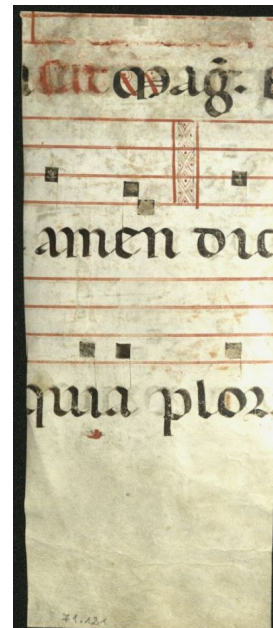 mag̃.
amen dic
quia plor
71.121